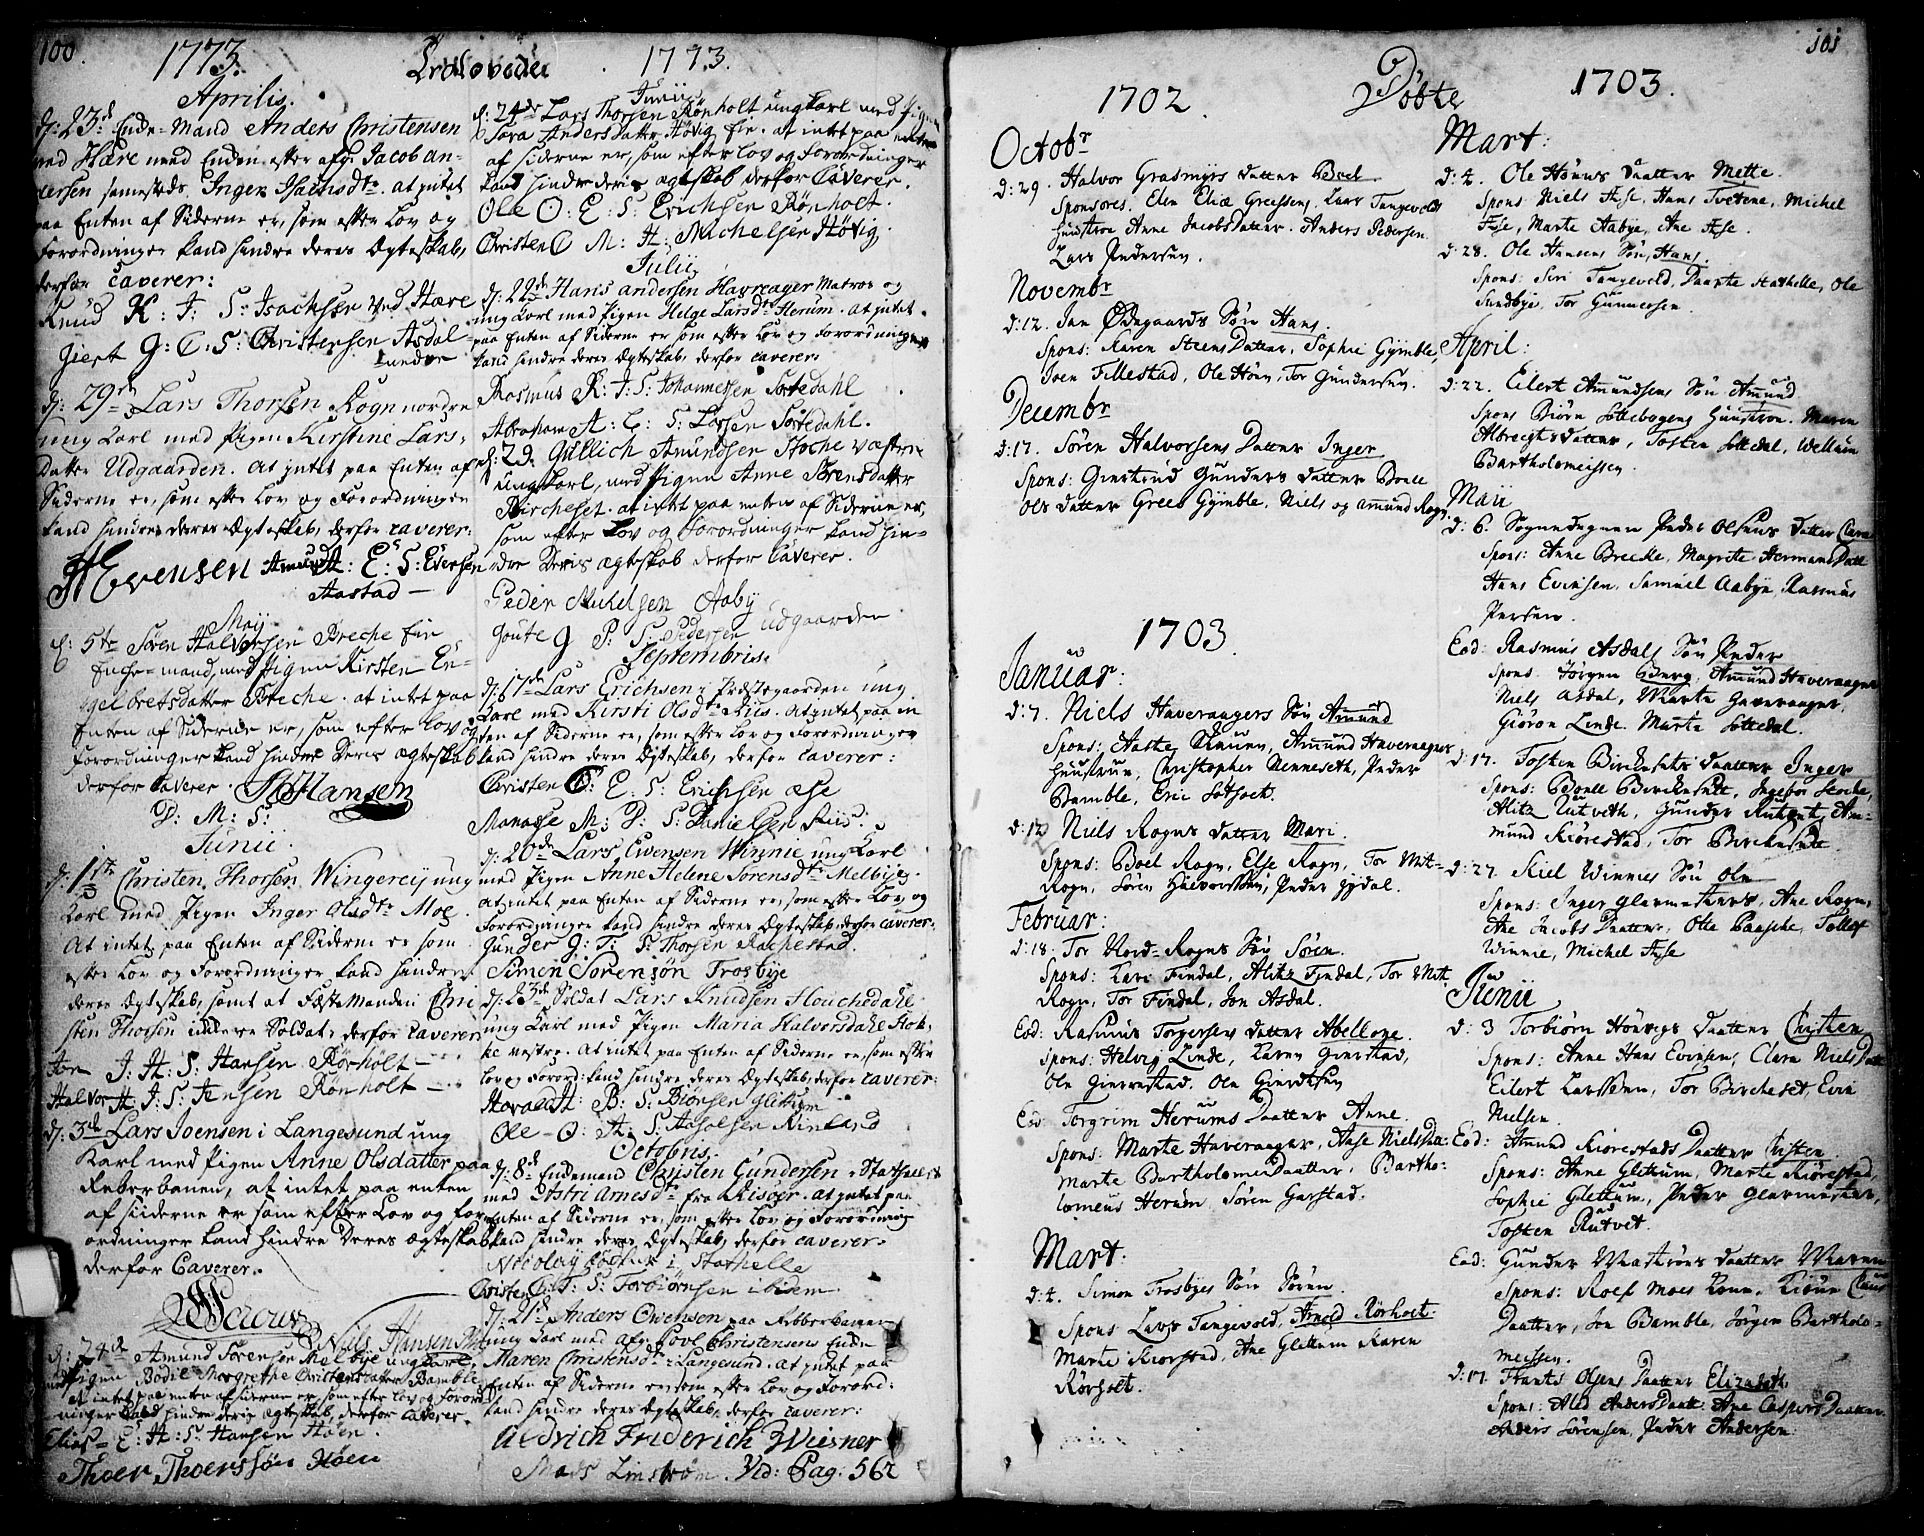 100.
1773.
Trolovede
Aprilis.
d: 23d Enke-Mand Anders Christensen
ved Hære med Enken efter afg: Jacob An-
dersen samesteds Inger Isachsdtr. at intet
paa Enten af Siderne er, som efter Lov og
Forordninger kand hindre deres Egteskab,
derfor Caverer:
Knud K: I: S: Isacksen ved Hære
Giert G: C: S: Christensen Asdal
søndre
d: 29de Lars Thorsen Rogn nordre
ung Karl med Pigen Kirstine Lars-
Datter Udgaarden. at intet paa Enten af
Siderne er, som efter Lov og Forordninger
kand hindre deres Egteskab, derfor caverer:
HEvensen Amund A: E: S: Evensen
Aastad —
Maij
d: 5te Søren Halvorsen Breche Ein
Enche-mand, med Pigen Kirsten En-
gelbretsdatter Breche. at intet paa
Enten af Siderne er, som efter Lov og
Forordninger kand hindre Deris ægteskab
derfor Caverer. Hansen
D: M: S:
Junii.
d: 1st Christen Thorsen Wingereij ung
Karl med Pigen Inger Olsdtr Moe.
At intet paa Enten af Siderne er som
efter Lov og Forordninger kand hindre
deres Egteskab, samt at Fæstemanden Chri
sten Thorsen ikke er Soldat, derfor caverer
J: H: S: Hansen Rørholt —
Halvor H: J: S: Jensen Rønholt —
d: 3de Lars Joensen i Langesund ung
Karl med Pigen Anne Olsdatter paa
Reberbanen, at intet paa enten
af siiderne er som efter Lov og for
ordninger kand hindre Deres ægteskab
derfor Caverer.
Niels Hansen
d: 24de Amund Sørensen Melbye ung Karl
med Pigen Bodil Margrethe Christensdatter Bamble
at intet paa enten af siderne er som efter lov og Forord
ninger kand hindre deris ægteskab, derfor caverer.
Elias E: H: S: Hansen Høen
Thoer Thoerssøn Høen
1773.
Junii
d: 24de Lars Thorsen Rønholt ung Karl med Pigen
Sara Andersdatter Høvig Ein. at intet paa enten
af siderne er, som efter Lov og Forordninger
kand hindre deris ægteskab, derfor Caverer.
Ole O: E: S: Erichsen Rønholt.
Christen C M: H: Michelsen Høvig
Julii.
d: 22de Hans andersen Havreager Matros og
ung Karl med Pigen Helge Larsdtr Herum. at intet
paa Enten af Siderne er som efter Lov og Forordninger
kand hindre deres Egteskab, derfor caverer.
Rasmus R: I: S: Johannessen Sortedahl
Abraham A: L: S: Larsen Sortedahl.
d: 29. Gullich Amundsen Stoche Vestre
ung Karl, med Pigen Anne Sørensdatter
Bircheset. at intet paa enten af Siderne er,
som efter Lov og Forordninger kand hin-
dre Deris ægteskab derfor Caverer.
Peder Michelsen Aaby
Goute G P: S: Pedersen Udgaarden
Septembris.
d: 17de Lars Erichsen i Præstegaarden ung
Karl med Kirsti Olsdtr Riis. At intet paa en
ten af Siderne er, som efter Lov og Forordninger
kand hindre deres Egteskab, derfor caverer:
Christen C: E: S: Erichsen Ese
Manasse M: D: S: Danielsen Riis:
d: 20de Lars Evensen Winnie ung Karl
med Pigen Anne Helene Sørensdtr Melbye.
at intet paa Enten af Siderne er, som efter Lov og
Forordninger kand hindre deres Egteskab, derfor caverer:
Gunder G: T: S: Thorsen Rachestad.
Simen Sørensøn Trosbye
d: 23de Soldat Lars Knudsen Houchedahl
ung Karl med Pigen Maria Halvorsdatr Stok-
ke vestre. At intet paa Enten af Siderne er, som efter
Lov og Forord: kand hindre deres Egteskab, derfor caverer:
B: S: Biønsen Glittum
Ole O: A: S: Aslolsen Rinland
Octobris.
d: 8de Enkemand Christen Gundersen i Stathelle
med Astri Arnesdr fra Risøer. at intet paa
Enten af Siderne er, som efter Lov og Forordning
kand hindre deres Egteskab, derfor caverer.
Nicolay i Stathelle
Christen C: T: S: Torbiørnsen ibidem
d: 21de Anders Evensen paa Rebberbanen
ung Karl med afg. Povl Christensens Enke
Maren Christensdtr i Langesund. at intet paa
Enten af Siderne er, som efter Lov og Forord:
kand hindre deres Egteskab, derfor caverer:
Aldrich Friderich Wiesner
Mads Linstrøm. Vid: Pag: 562
101
1702.
Døbte
1703.
Octobr
d: 29. Halvor Grasmyrs Datter Boel.
Sponsores, Elen Eliæ Greessens, Lars Tangevolds
Huustroe Anne JacobsDatter. Anders Pedersen.
Lars Pedersen.
Novembr
d: 12. Jan Ødegaards Søn Hans.
Spons: Karen SteensDatter, Sophie Gÿmble,
Iven Fillestad, Ole Høen, Tor Gundersen.
Decembr
d: 17. Søren Halvorsens Datter Inger
Spons: Giertrud Gunders datter Boell
Ols datter Grees Gÿmble, Niels og Amund Rogn.
1703.
Januar:
d: 7. Niels Haveraagers Søn Amund
Spons: Aaste Amund Haveraagers
Huustrue, Christopher Nenneseth, Peder
Bamble, Eric
d: 12 Niels Rogns datter Mari.
Spons: Boel Rogn, Else Rogn, Tor Mit-
Rogn, Søren Halvorssøn, Peder Gjydal.
Februar:
d: 18. Tor Nord-Rogns Søn Søren.
Spons: Kari Findal, Alitz Findal, Tor Mit
Rogn, Tor Findal, Jon Asdal.
Eod: Rasmus Torgersens datter Abelloge.
Spons: Helvig Linde, Karen Gierstad,
Ole Gierrestad, Ole Giertsen
Eod: Torgrim Herums Daatter Anne.
Spons: Marte Haveraager, Aase NielsDatt:
Marte BartholomeiDaatter, Bartho-
lomeus Herum, Søren Garstad.
Mart:
d: 4. Simon Trosbyes Søn Søren
Spons: Lars Tangevold, Arnold Rørholt.
Marte Kiørstad, Ane Glettum Karen
Rørholt.
Mart:
d: 4. Ole Høens Daatter Mette.
Spons: Niels Ase, Hans Tvetene, Michel
Ese, Marte Aabye, Ane Ese.
d: 28. Ole Hansens Søn, Hans.
Spons: Siri Tangevold, Daarte Stathelle, Ole
Sundbye, Tor Gunnersen.
April:
d: 22. Eilert Amundsens Søn Amund
Spons: Biørn Huustroe. Maren
Albregtsdatter, Tosten Sottedal, Wellum
Bartholomeissen.
Maii
d: 6. Sognedegnen Peder Olsens datter Clara
Spons: Anne Brecke, Magrete HermansDatt
Hans Evensen, Samuel Aabye, Rasmus
Persen.
Eod: Rasmus Asdals Søn Peder
Spons: Jørgen Berg, Amund Haveraager
Niels Asdal, Marte Haveraager,
Giøron Linde. Marte Sottedal.
d: 17. Tosten Birckesets daatter Inger
Spons: Boell Birckeset, Ingebor Stocke,
Alitz Rutveth, Gunder Rutvet, A-
mund Kiørestad, Tor Birckeset.
d: 27. Kiel Winnies Søn Ole
Spons: Inger Glarmesters, Ane Rogn,
Ane Jacobs Daatter, Olle Paasche, Tollef
Winnie, Michel Ese
Junii
d: 3 Torbiørn Hønvigs daatter Christen
Spons: Anne Hans Evensen, Clara NielsDatt
Eilert Larssen, Tor Bircheset, Even
Nielsen.
Eod: Amund Kiørestads Daatter Christen.
Spons: Anne Glettum, Marte Kiørestad,
Sophie Glettum, Peder Glarmester,
Tosten Rutvet.
Eod: Gunder Daatter Maren
Spons: Roef Moes Kone,
Daatter, Jon Bamble, Jørgen Bartholo-
meissen.
d: 17. Frants Olsens Daatter Elizabeth.
Spons: Aled AndersDaatt: Ane CaspersDaatter.
Anders Sørensen, Peder Andersen.